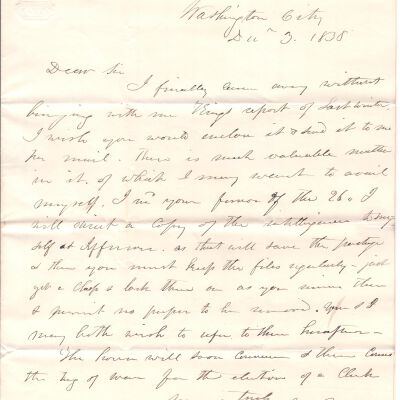 Washington City
Decr 3. 1838
Dear Sir
I finally came away without
bringing with me King's report of last winter
I wish you would enclose it & send it to me
per mail. There is much valuable matter
in it, of which I may want to avail
myself. I in your favor of the 26. I
will direct a copy of the Intelligencer to my
self at Jefferson. as that will save the postage
& then you must keep the files regularly - just
get a clasp & lock them on as you receive them
& permit no paper to be removed. You & I
may both wish to refer to them hereafter -
The House will soon convene & then comes
the tug of war for the election of a Clerk